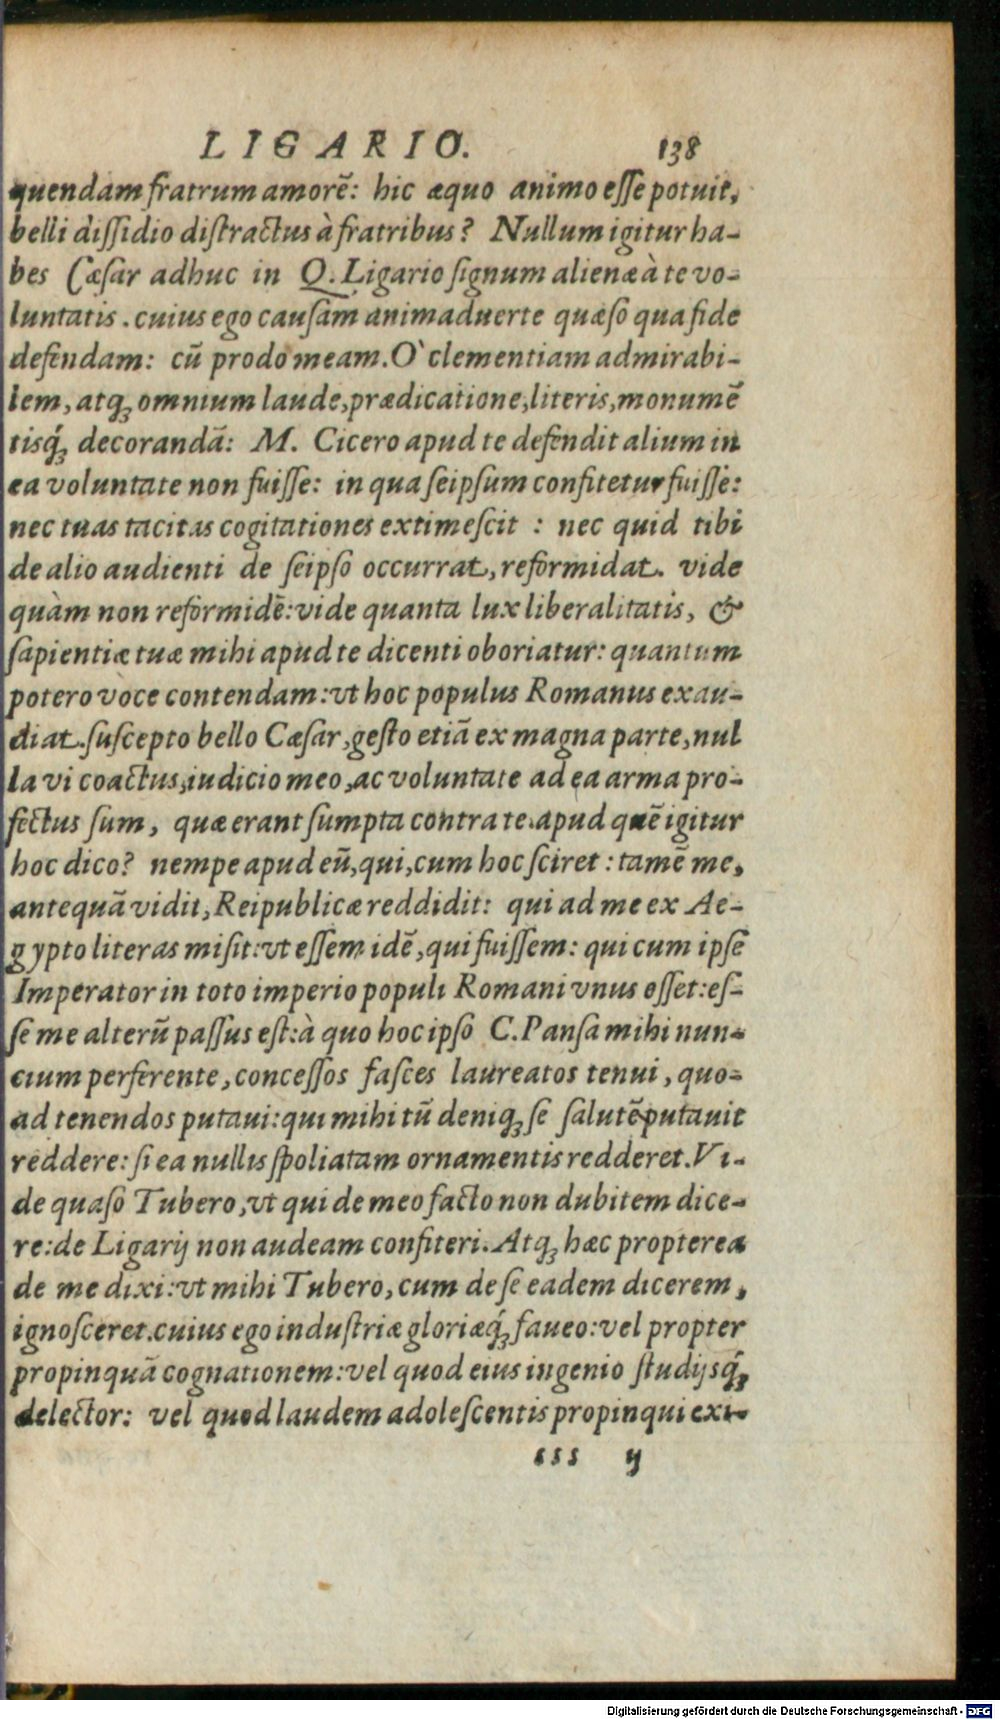 LIGARIO. 138
quendam fratrum amorē: hic æquo animo esse potuit,
belli dissidio distractus à fratribus? Nullum igitur ha-
bes Cæsar adhuc in Q. Ligario signum alienæ à te vo-
luntatis. cuius ego causam animaduerte quæso qua fide
defendam: cū prodo meam. O` clementiam admirabi-
lem, atq; omnium laude, prædicatione, literis, monumē
tisq́; decorandā: M. Cicero apud te defendit alium in
ea voluntate non fuisse: in qua seipsum confitetur fuisse:
nec tuas tacitas cogitationes extimescit : nec quid tibi
de alio audienti de seipso occurrat, reformidat. vide
quàm non reformidē: vide quanta lux liberalitatis, &
sapientiæ tuæ mihi apud te dicenti oboriatur: quantum
potero voce contendam: vt hoc populus Romanus exau-
diat. suscepto bello Cæsar, gesto etiā ex magna parte, nul
la vi coactus, iudicio meo, ac voluntate ad ea arma pro-
fectus sum, quæ erant sumpta contra te. apud quē igitur
hoc dico? nempe apud eū, qui, cum hoc sciret : tamē me,
antequā vidit, Reipublicæ reddidit: qui ad me ex Ae-
gypto literas misit: vt essem idē, qui fuissem: qui cum ipse
Imperator in toto imperio populi Romani vnus esset: es-
se me alterū passus est: à quo hoc ipso C. Pansa mihi nun-
cium perferente, concessos fasces laureatos tenui, quo-
ad tenendos putaui: qui mihi tū deniq; se salutē putauit
reddere: si ea nullis spoliatam ornamentis redderet. Vi-
de quæso Tubero, vt qui de meo facto non dubitem dice-
re: de Ligarij non audeam confiteri. Atq; hæc propterea
de me dixi: vt mihi Tubero, cum de se eadem dicerem,
ignosceret. cuius ego industriæ gloriæq́; faueo: vel propter
propinquā cognationem: vel quod eius ingenio studijsq́;
delector: vel quod laudem adolescentis propinqui exi-
sss ij
Digitalisierung gefördert durch die Deutsche Forschungsgemeinschaft - DFG